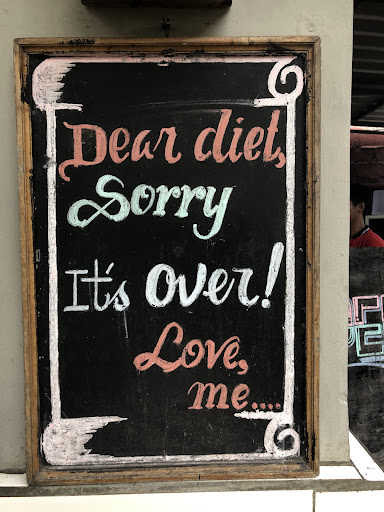 Dear diet,
Sorry
It's over!
Love,
me....